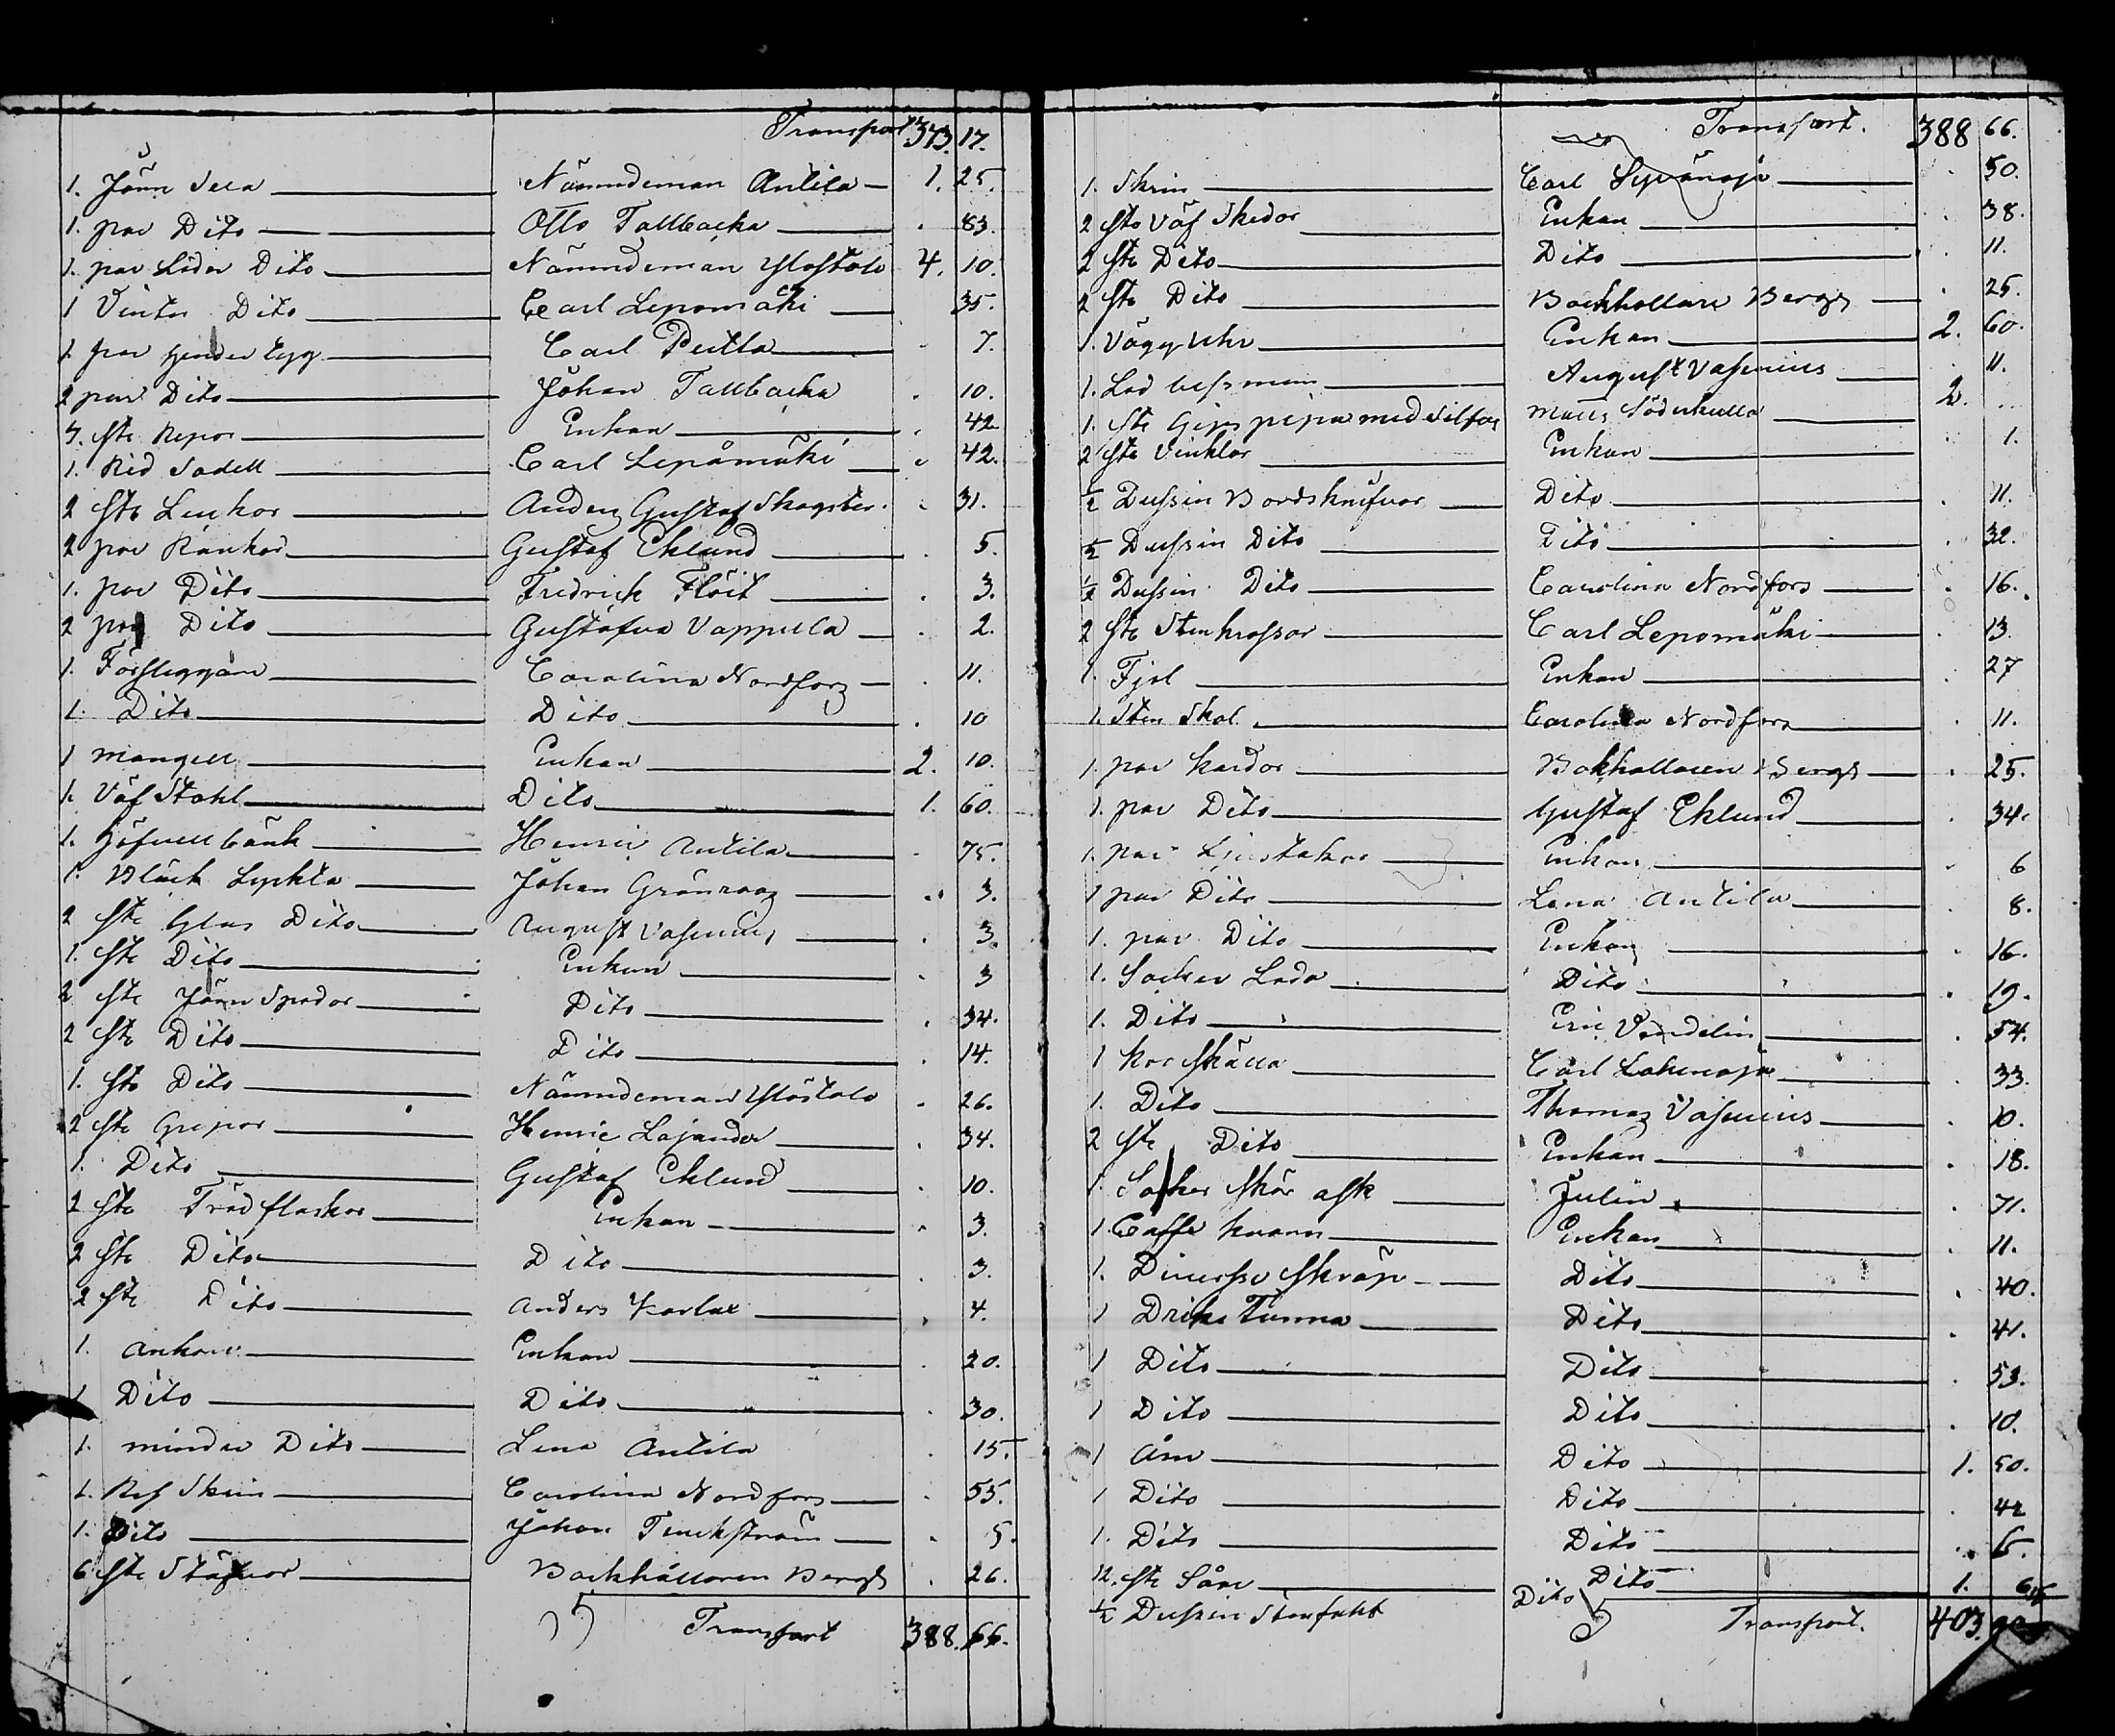 Transport 373. 17.
1. Järn Sela Nämndeman Antila 1. 25.
1. par Dito Otto Tallbacka . 83.
1. par Läder Dito Nämndeman Ylostalo 4. 10.
1 Vinter Dito Carl Lepomäki . 35.
1. par Hender tyg Carl Peitla . 7.
2 par Dito Johan Tallbacka . 10.
7. ste Repor Enkan . 42
1. Rid Sadell Carl Lepämäki . 42.
2 ste Lenkor Anders Gustaf Skogster . 31.
2 par Rankor Gustaf Eklund . 5.
1. par Dito Fredrick Flöit . 3.
2 par Dito Gustafva Vappula . 2.
1. Carolina Nordfors . 11.
1. Dito Dito . 10
1 mangell Enkan 2. 10.
1. Väf Stohl Dito 1. 60.
1. Höfvell bänk Henric Antila . 75.
1. Bläck Lyckta Johan Grönroos . 3.
2 ste Glas Dito August Vasenius . 3.
1. ste Dito Enkan . 3
2 ste Järn Spador Dito . 34.
2 ste Dito Dito . 14.
1. ste Dito Nämndeman Ylöstalo . 26.
2 ste Grepor Henric Lojander . 34.
1. Dito Gustaf Eklund . 10.
2 ste Träd flaskor Enkan . 3.
2 ste Dito Dito . 3.
2 ste Dito Anders Karlux . 4.
1. ankare Enkan . 20.
1 Dito Dito . 30.
1. mindre Dito Lena Antila . 15.
1. Res Skrin Carolina Nordfors . 55.
1. Dito Johan Tenckström . 5.
6 ste Stäfvor Bockhållaren Bergh . 26.
Transport 388. 66.
Transport. 388 66.
1. Skrin Carl . 50.
2 ste Väf Skedor Enkan . 38.
2 ste Dito Dito . 11.
2 ste Dito Bockhollare Bergh . 25.
1. Vägg Uhr Enkan 2. 60.
1. Lod besman August Vasenius . 11.
1. ste Gips pipa med Silfver Matts Söderkulla 2. ..
2 ste Vinklar Enkan . 1.
1/2 Dussin Bordsknifvar Dito . 11.
1/2 Dussin Dito Dito . 32.
1/2 Dussin Dito Carolina Nordfors . 16.
2 ste Stenkrossor Carl Lepomäki . 13.
1. Fjol Enkan . 27
1. Sten Skol Carolina Nordfors . 11.
1. par Kardor Bokhollaren Bergh . 25.
1. par Dito Gustaf Eklund . 34.
1. par Ljustakor Enkan . 6
1 par Dito Lena Antila . 8.
1. par Dito Enkan . 16.
1. Socker Loda Dito . 19.
1. Dito Eric Vendelin . 54.
1 Kor Skälla Carl . 33.
1. Dito Thomas Vasenius . 10.
2 ste Dito Enkan . 18.
1. Socker Skor ask Julin . 71.
1. Caffe kvarn Enkan . 11.
1. Diversse Skräp Dito . 40.
1 Driks Tunna Dito . 41.
1 Dito Dito . 53.
1 Dito Dito . 10.
1 Åm Dito 1. 50.
1 Dito Dito . 42
1. Dito Dito . 6.
12. ste Såar Dito 1.
1/2 Dussin Stenfahl Dito
Transport. 403.